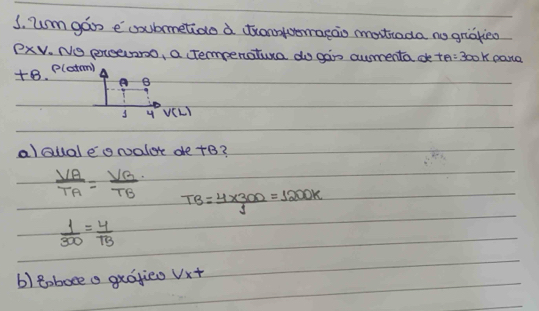 1. Um gás é submetido à transformação mostrada no gráfico
PXV. No processo, a temperatura do gás aumenta de tA=300K para
tB.
P(atm)
A B
1 4 V(L)
a) Qual é o valor de tB?
VA/TA = VB/TB.
TB = 4x300/1 = 1200K
1/300 = 4/TB
b) Esboce o gráfico Vxt